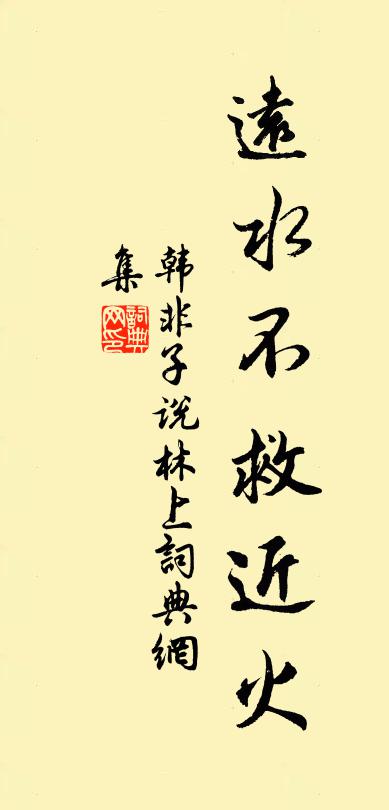 遠水不救近火
韩非子说林上詞典網
集
詞典
网印